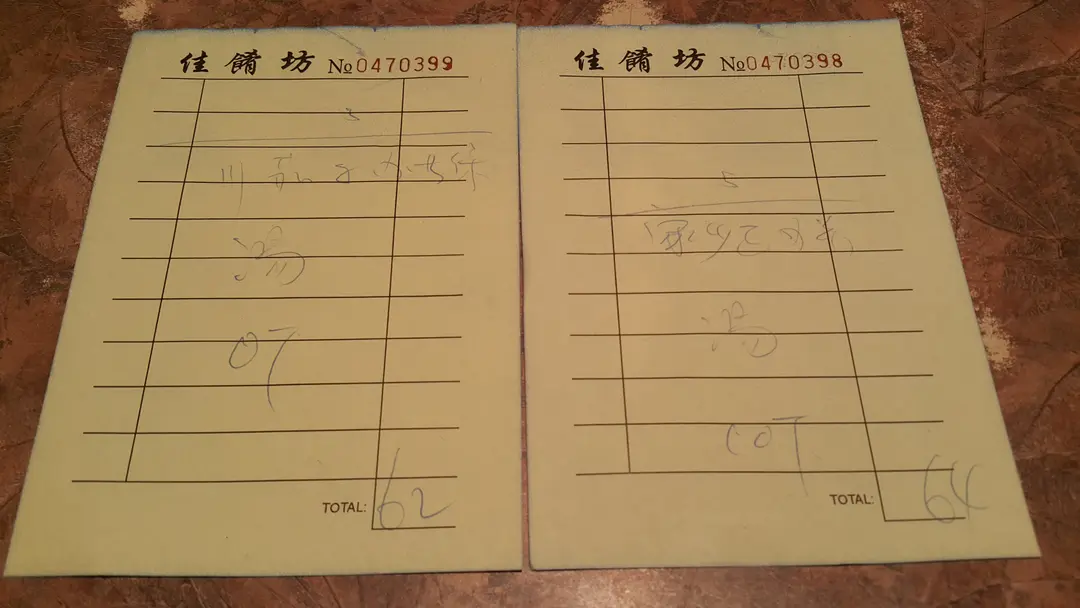 佳餚坊 №0470399
3
湯
OT
TOTAL: 62
佳餚坊 №0470398
5
湯
COT
TOTAL: 64